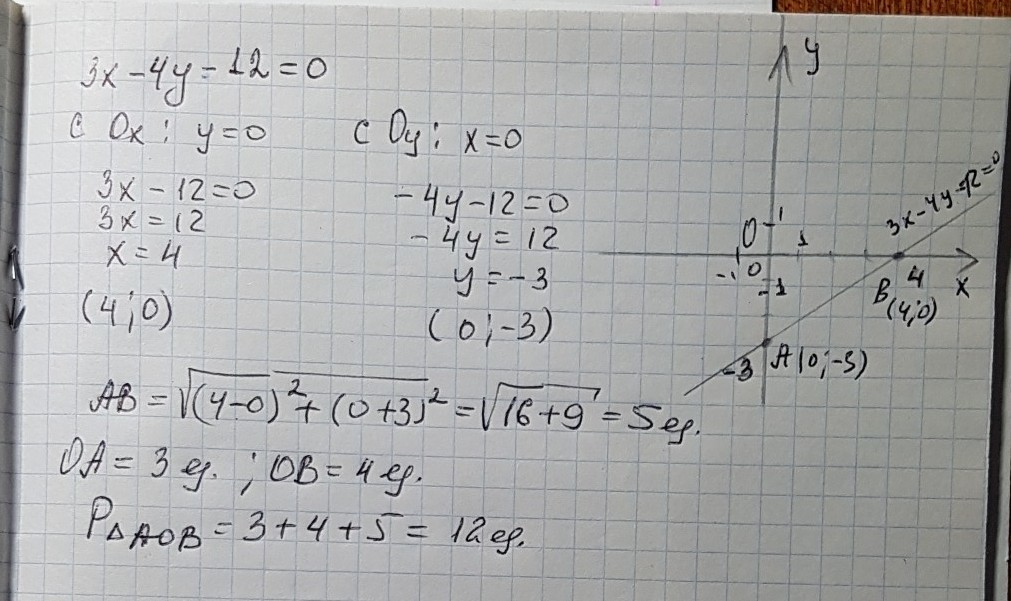 3x - 4y - 12 = 0
С Ox : y = 0
С Oy : x = 0
3x - 12 = 0
3x = 12
x = 4
(4; 0)
- 4y - 12 = 0
- 4y = 12
y = - 3
(0; -3)
y
3x - 4y - 12 = 0
0 1
1
-1 0
-1
4
x
B
(4; 0)
-3 A (0; -3)
AB = √(4-0)² + (0+3)² = √16+9 = 5 ед.
OA = 3 ед. ; OB = 4 ед.
P△AOB = 3 + 4 + 5 = 12 ед.